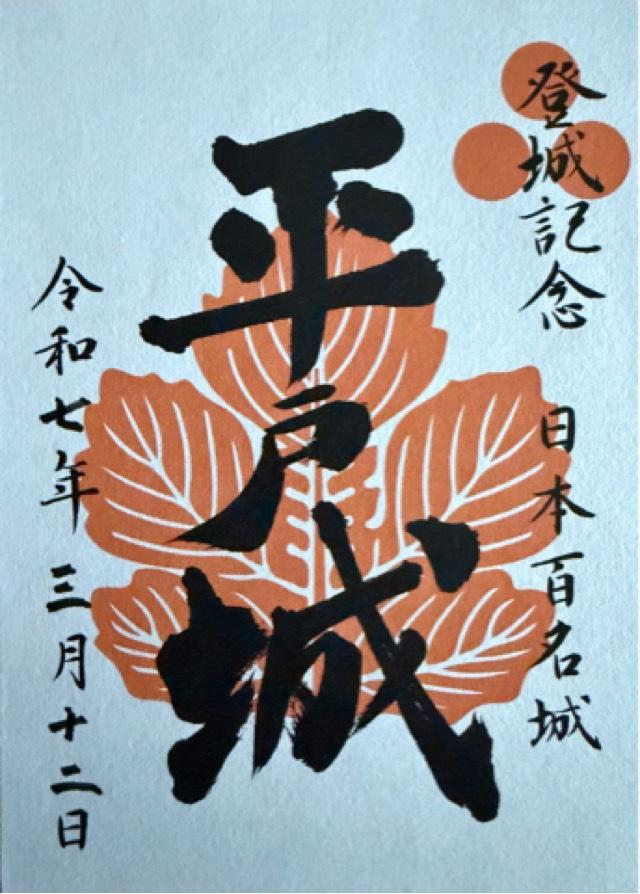 登城記念
日本百名城
平戸城
令和七年 三月十二日